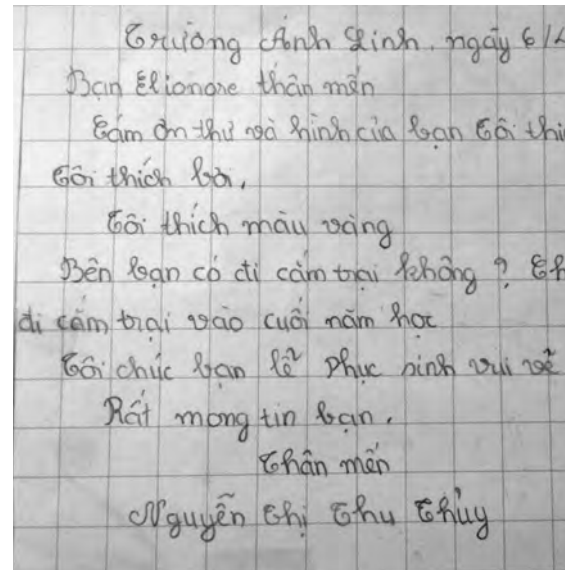 Trường Ánh Linh, ngày 6/
Bạn Elionore thân mến
Cám ơn thư và hình của bạn Tôi
Tôi thích bơi,
Tôi thích màu vàng
Bên bạn có đi cắm trại không ?
đi cắm trại vào cuối năm học
Tôi chúc bạn lễ Phục sinh vui vẻ
Rất mong tin bạn.
Thân mến
Nguyễn Thị Thu Thủy